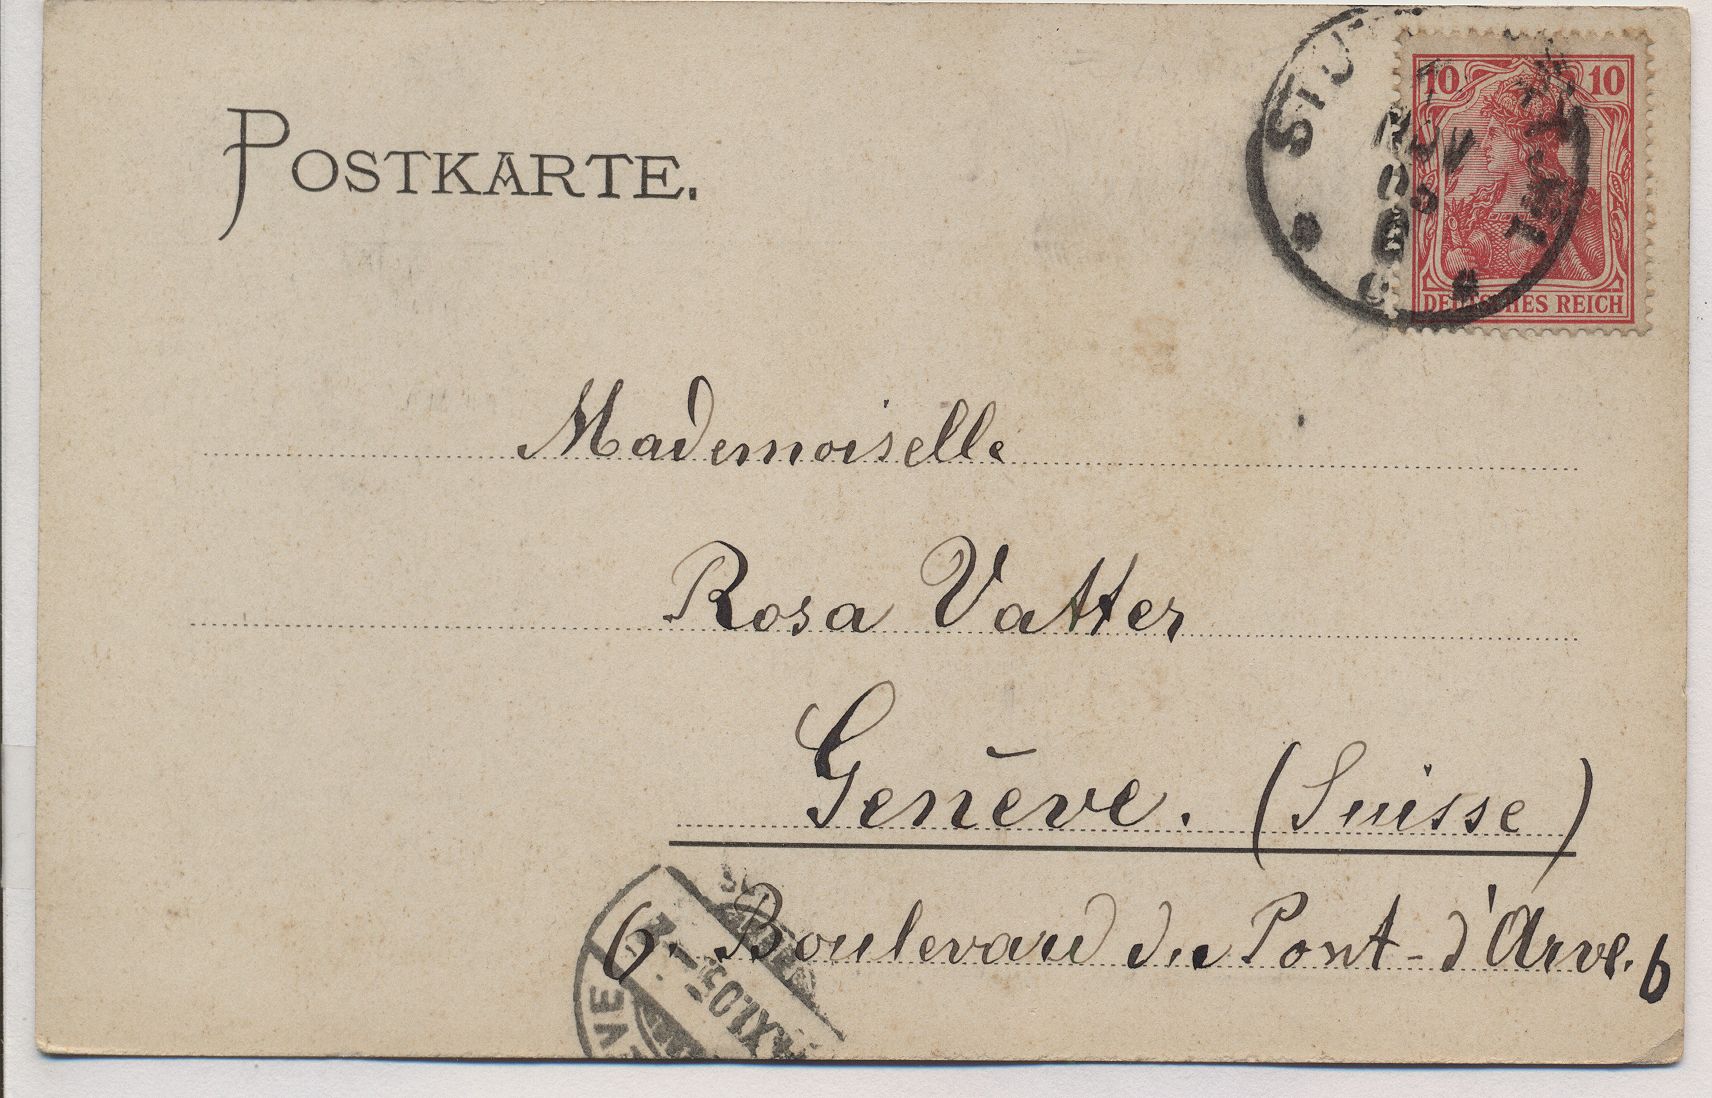 POSTKARTE.
10 10
DEUTSCHES REICH
NOV
05
Mademoiselle
Rosa Vatter
Genève. (Suisse)
6. Boulevard du Pont-d'Arve. 6
XI.05